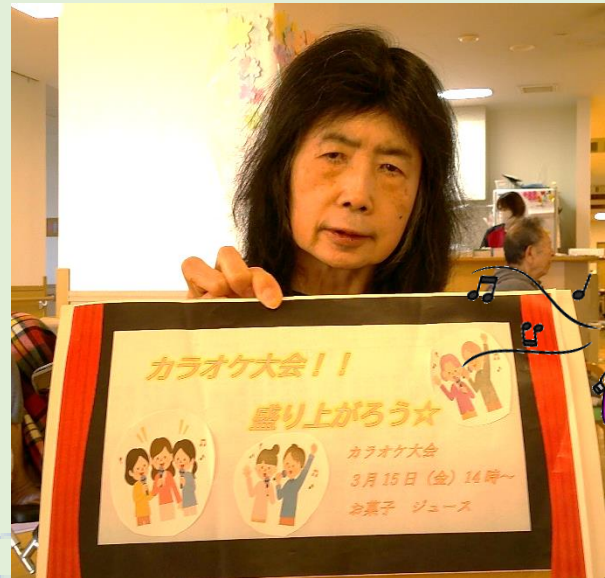 カラオケ大会！！
盛り上がろう☆
カラオケ大会
3月15日（金）14時～
お菓子　ジュース